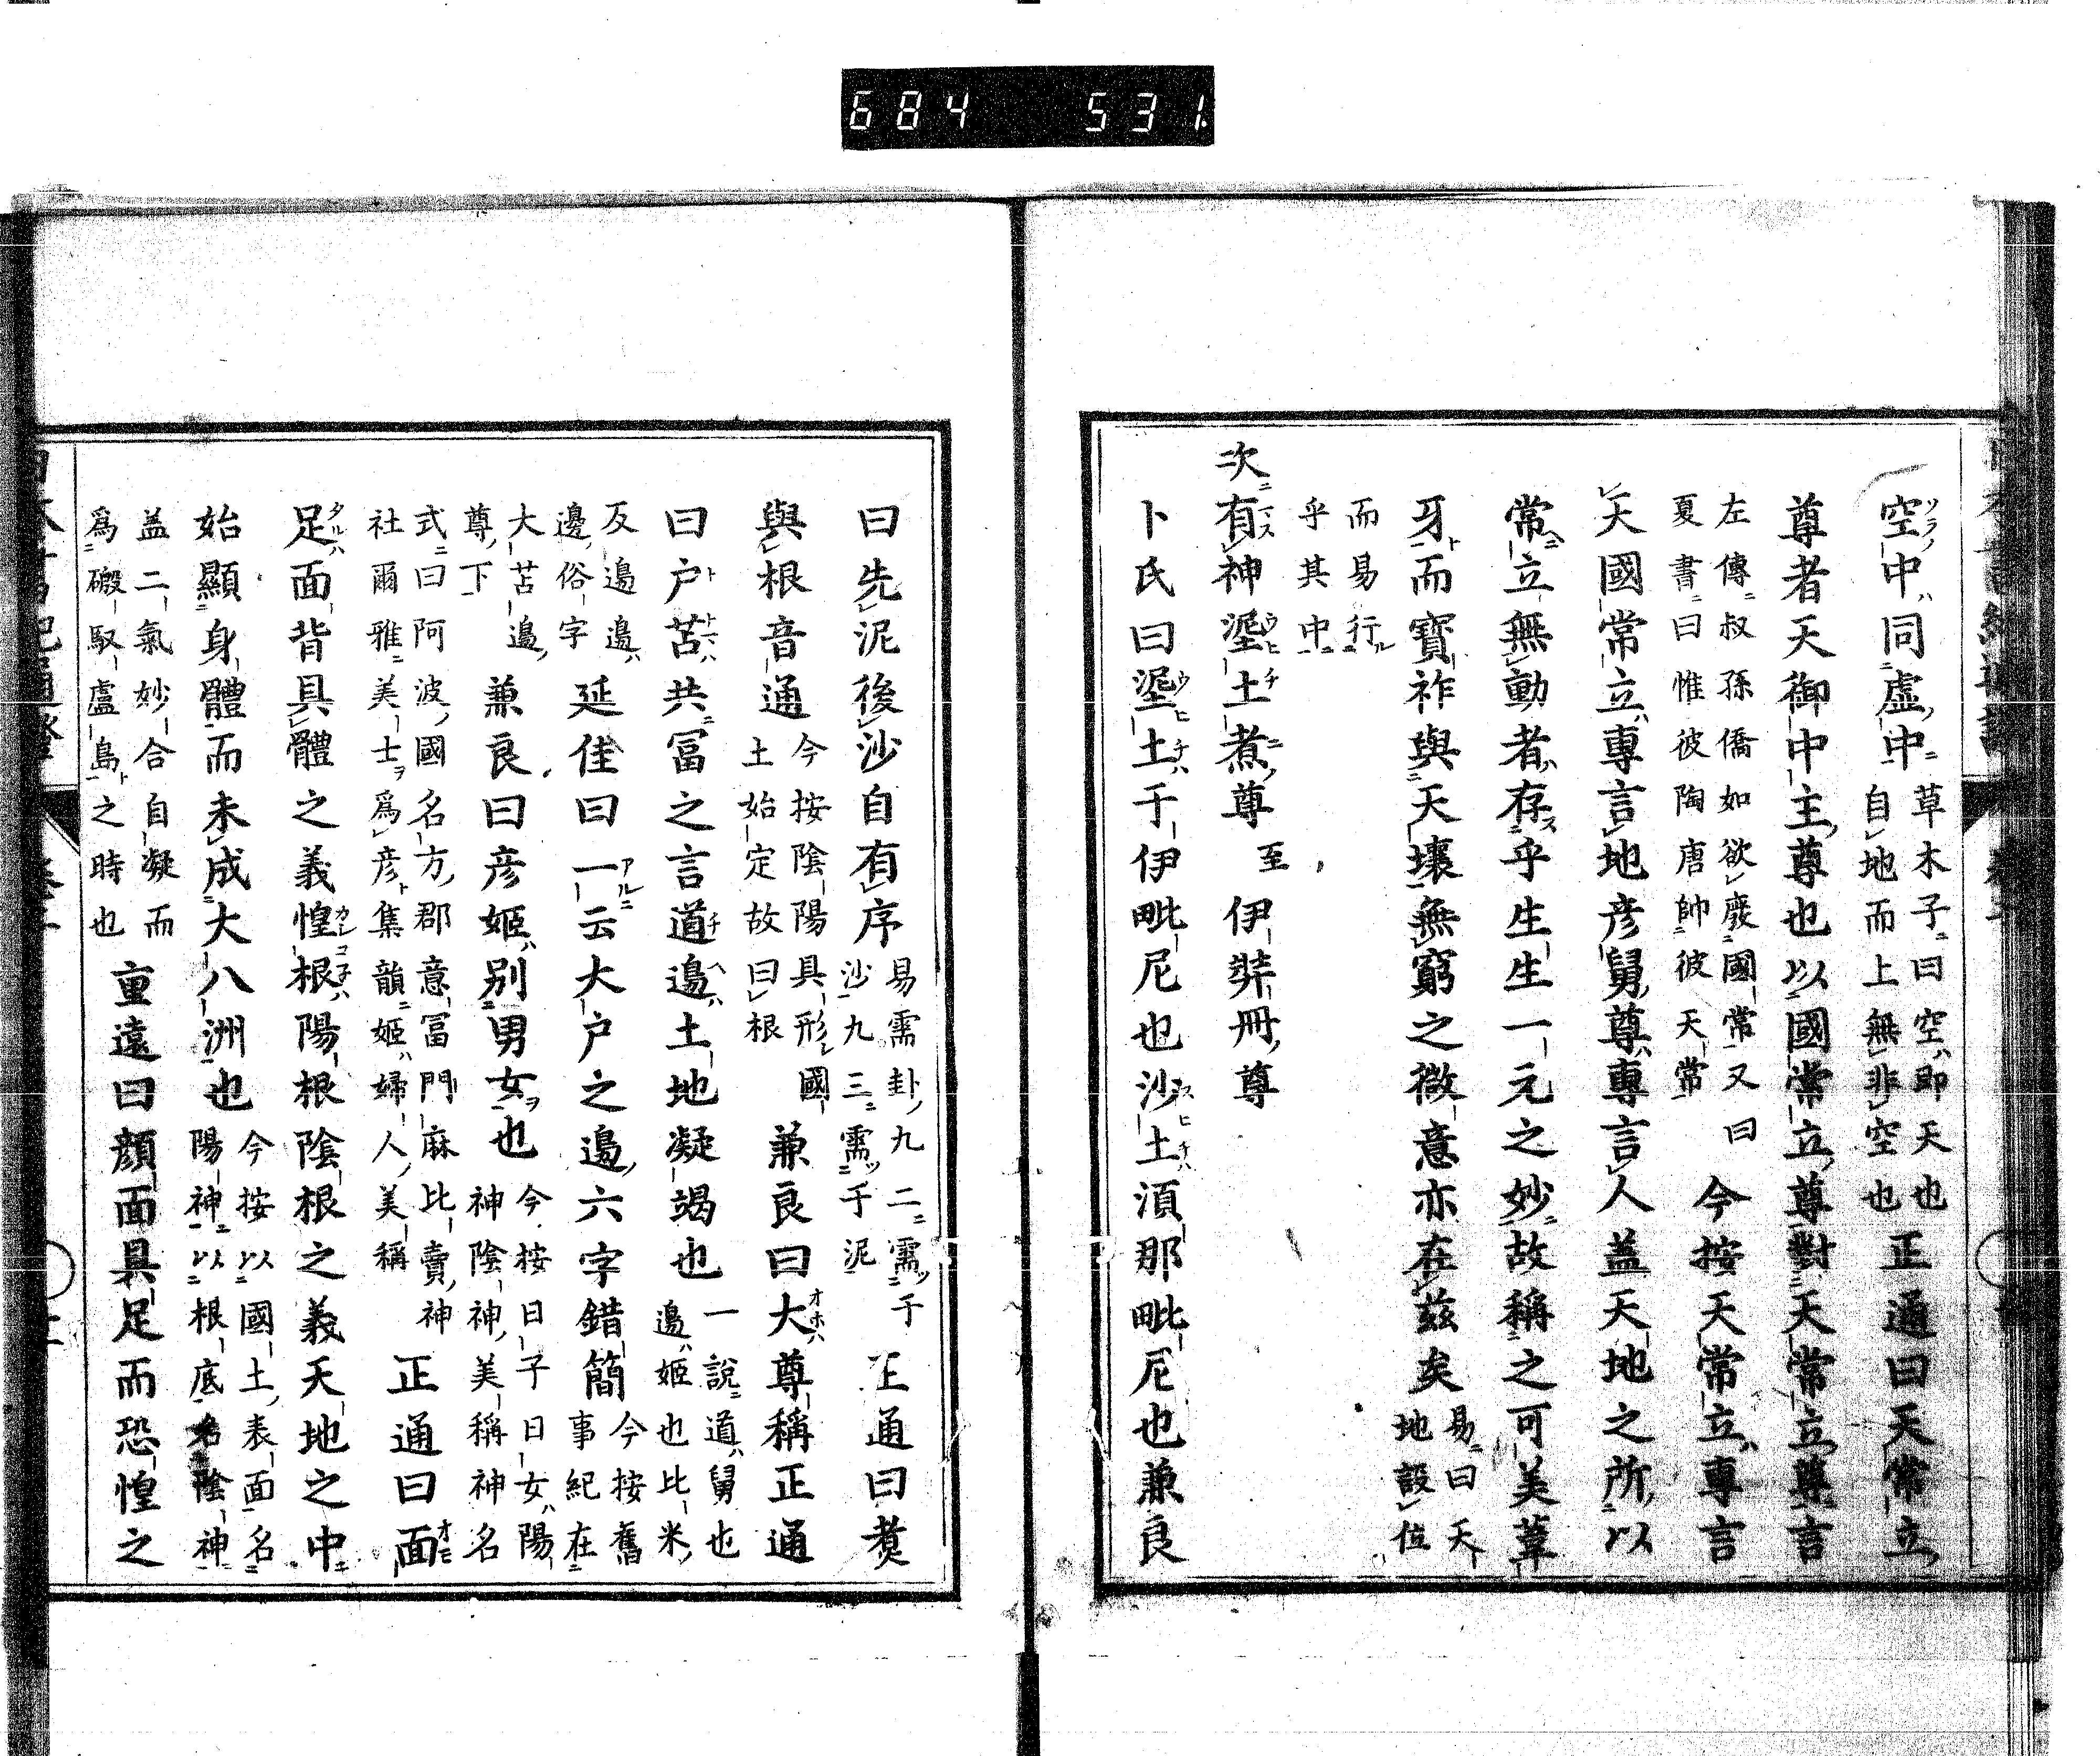 684 531
空中同虚中草木子曰空即天也自地而上無非空也正通曰天常立
尊者天御中主尊也以國常立尊對天常立尊言
左傳叔孫僑如欲廢國常又曰夏書曰惟彼陶唐帥彼天常今按天常立專言
天國常立專言地彦舅尊專言人蓋天地之所以
常立無動者存乎生生一元之妙故稱之可美葦
牙而寶祚與天壤無窮之微意亦在茲矣易曰天地設位
而易行乎其中
次有神埿土煮尊至伊弉冊尊
卜氏曰埿土于伊毗尼也沙土湏那毗尼也兼良
曰先泥後沙自有序易需卦九二需于沙九三需于泥正通曰煑
與根音通今按陰陽具形國土始定故曰根兼良曰大尊稱正通
曰戸苫共冨之言道邊土地凝竭也一說道舅也邊姬也比米
反邊邊邊俗字延佳曰一云大戸之邊六字錯簡今按舊事紀在
大苫邊尊下兼良曰彦姬別男女也今按日子日女陽神陰神美稱神名
式曰阿波國名方郡意冨門麻比賣神社爾雅美士爲彦集韻姬婦人美稱正通曰面
足面背具體之義惶根陽根陰根之義天地之中
始顯身體而未成大八洲也今按以國土表面名陽神以根底名陰神
蓋二氣妙合自凝而爲磤馭盧島之時也重遠曰顔面具足而恐惶之